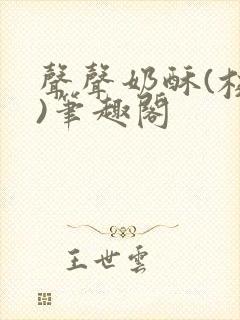 聲聲奶酥(校
)筆趣閣
王世雲